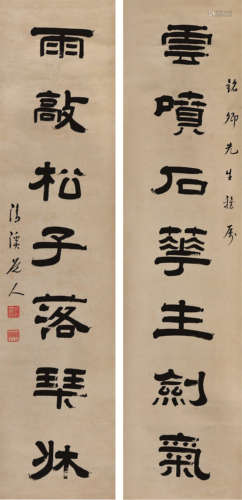 銘卿先生雅屬
雲噴石華生劍氣
雨敲松子落琴牀
清溪道人